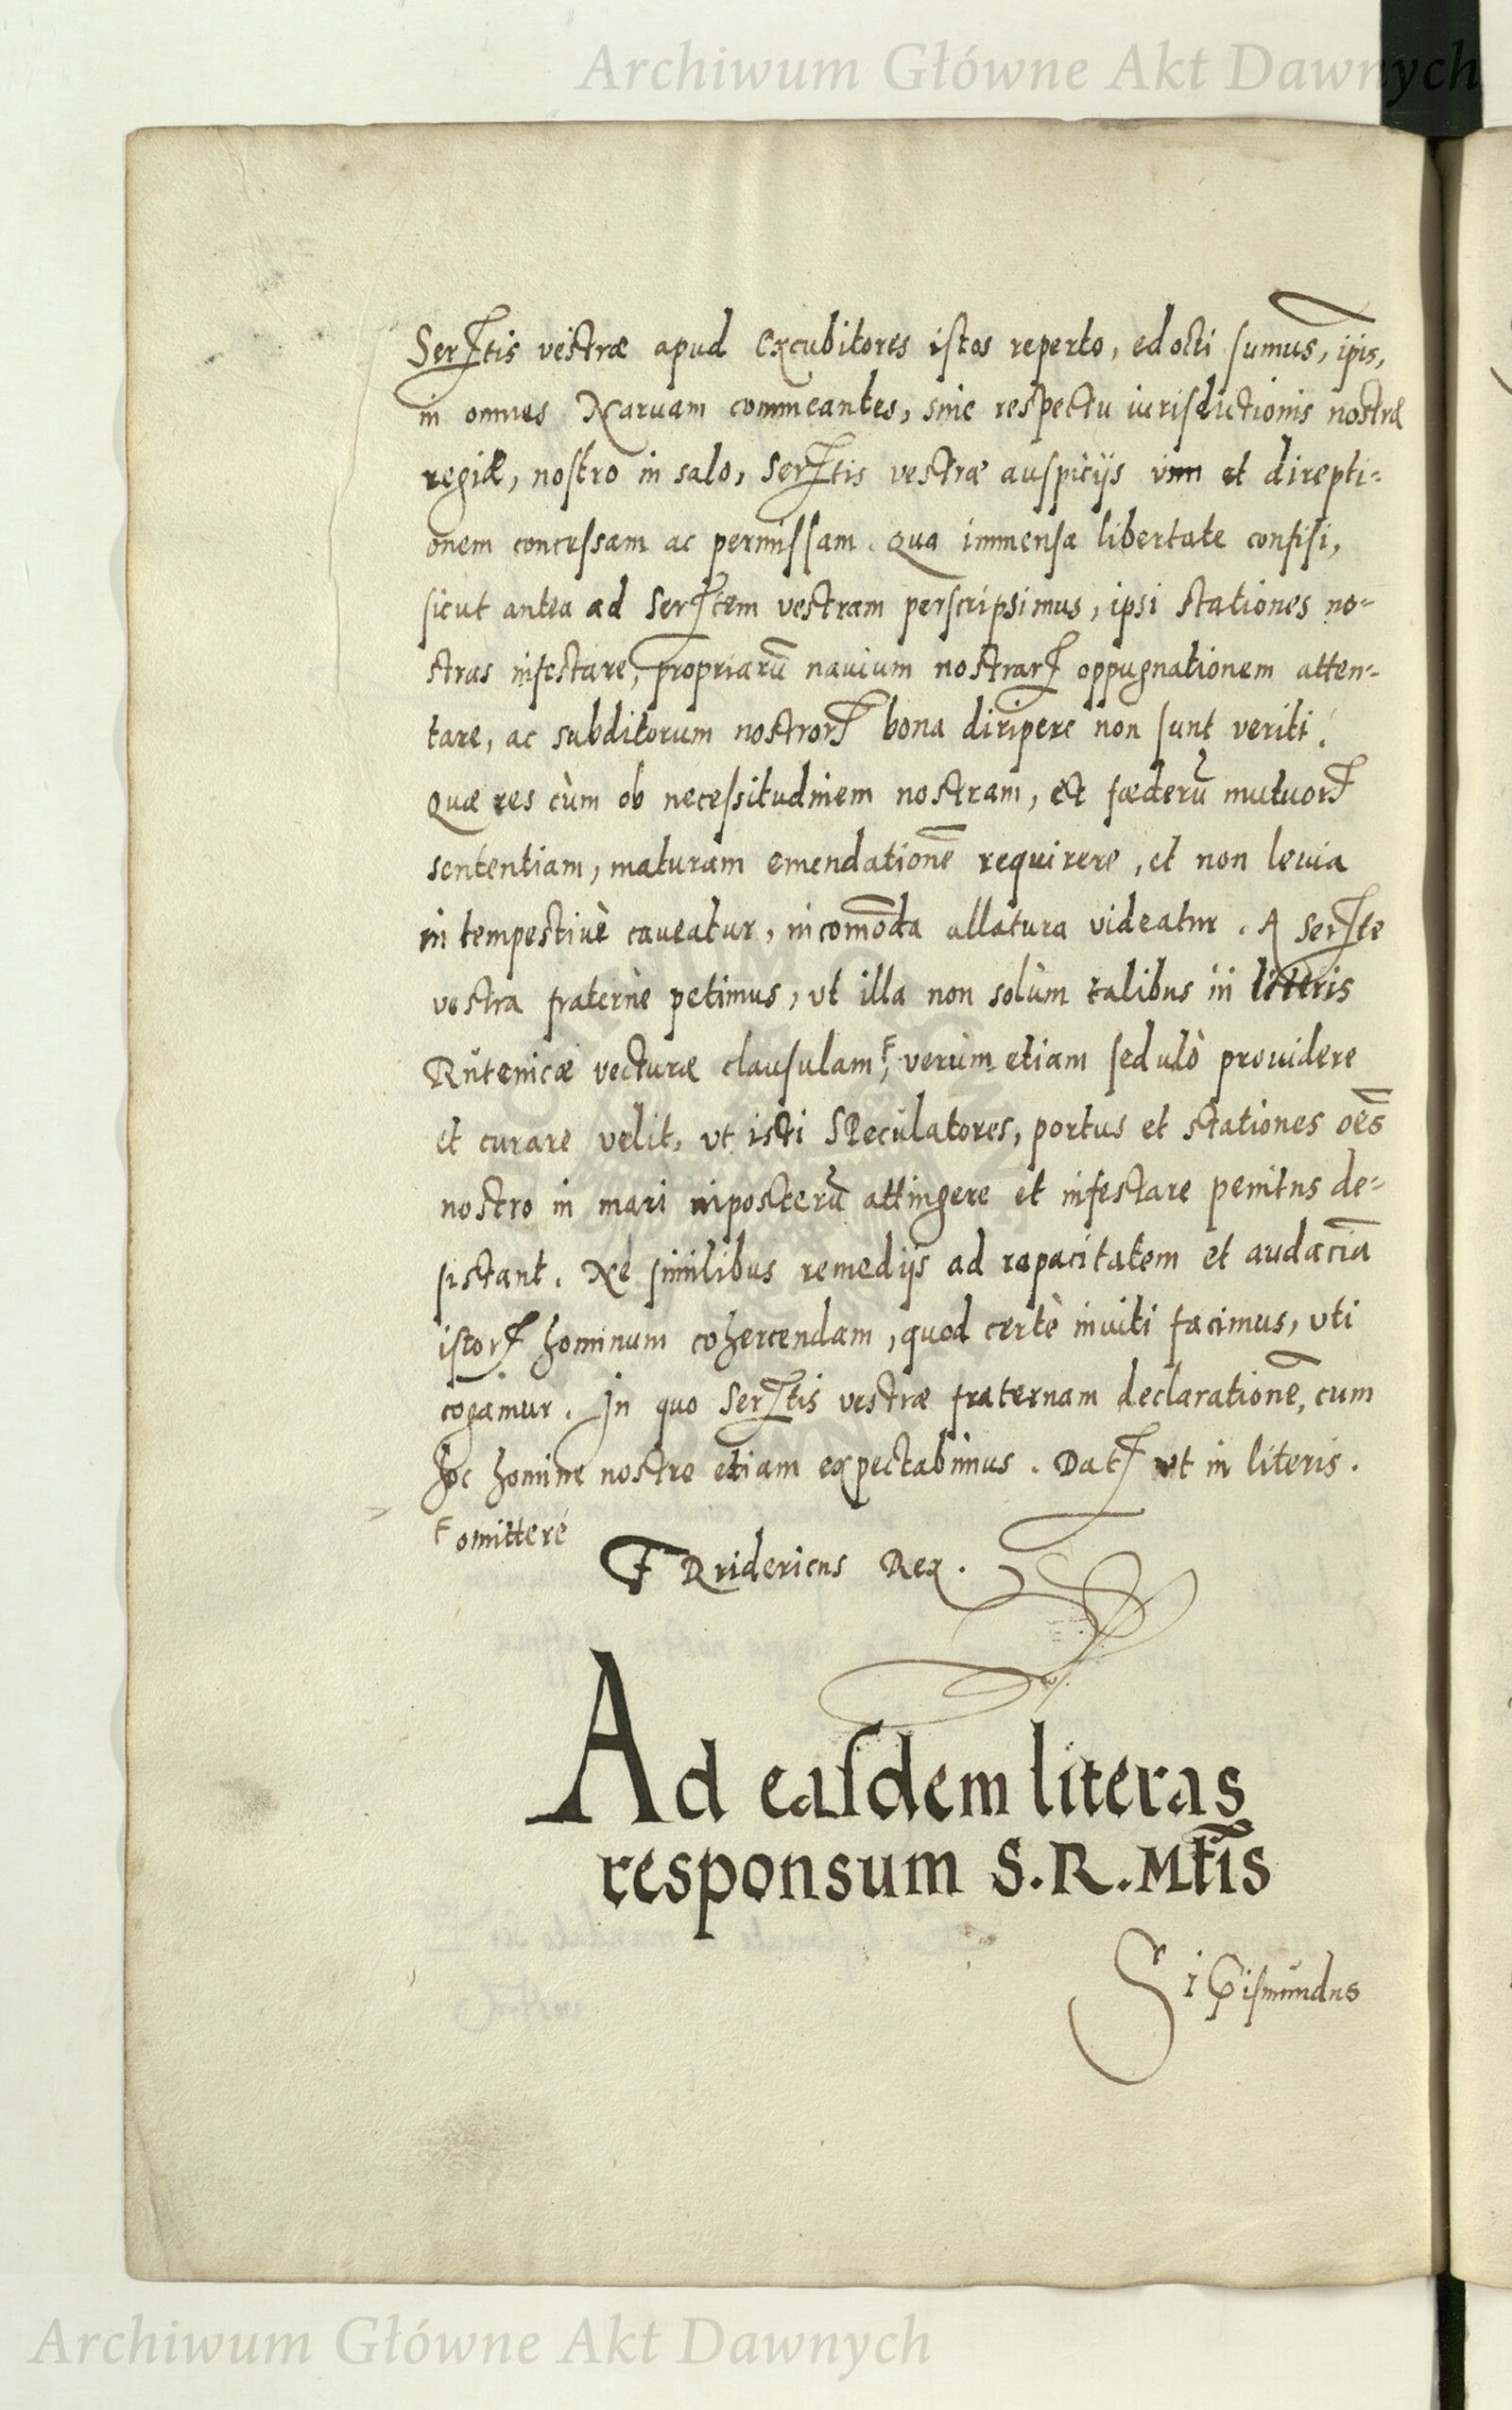 Archiwum Główne Akt Dawnych
Serꝭtis vestræ apud Excubitores istos reperto, edocti sumus, ip̄is,
in omnes Naruam commeantes, sine respectu iurisdictionis nostræ
regiæ, nostro in salo, Serꝭtis vestræ auspicijs vim et direpti-
onem concessam ac permissam. Qua immensa libertate confisi,
sicut antea ad Serꝭtem vestram perscripsimus, ipsi stationes no-
stras infestare, propriarū nauium nostrarꝭ oppugnationem atten-
tare, ac subditorum nostrorꝭ bona diripere non sunt veriti.
Quæ res cùm ob necessitudinem nostram, et fœderū mutuorꝭ
sententiam, maturam emendationē requirere, et non leuia
in tempestiuè caueatur, incomōda allatura videatur. A Serꝭte
vestra fraternè petimus, vt illa non solùm talibus in literis
Rŭtenicæ vecturæ clausulam,ꜰ verùm etiam sedulò prouidere
et curare velit, vt isti Speculatores, portus et stationes oēs
nostro in mari inposterū attingere et infestare penitus de-
sistant. Nè similibus remedijs ad rapacitatem et audaciā
istorꝭ hominum cohercendam, quod certè inuiti facimus, vti
cogamur. In quo Serꝭtis vestræ fraternam declarationē, cum
hoc homine nostro etiam expectabimus. Datꝭ vt in literis.
ꜰ omittere
FRidericus Rex.
Ad easdem literas
responsum S.R.Mt̄is
Sigismŭndus
Archiwum Główne Akt Dawnych